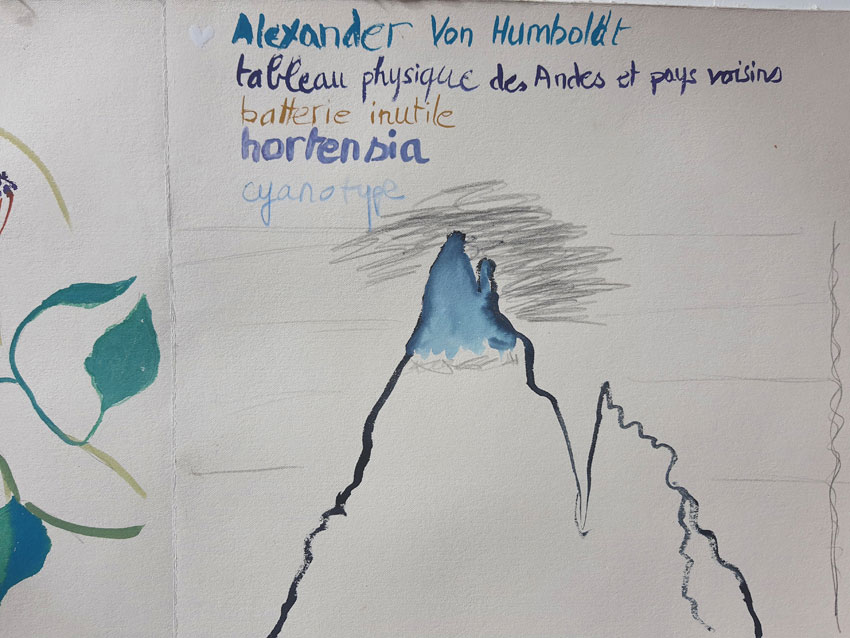 Alexander Von Humboldt
tableau physique des Andes et pays voisins
batterie inutile
hortensia
cyanotype